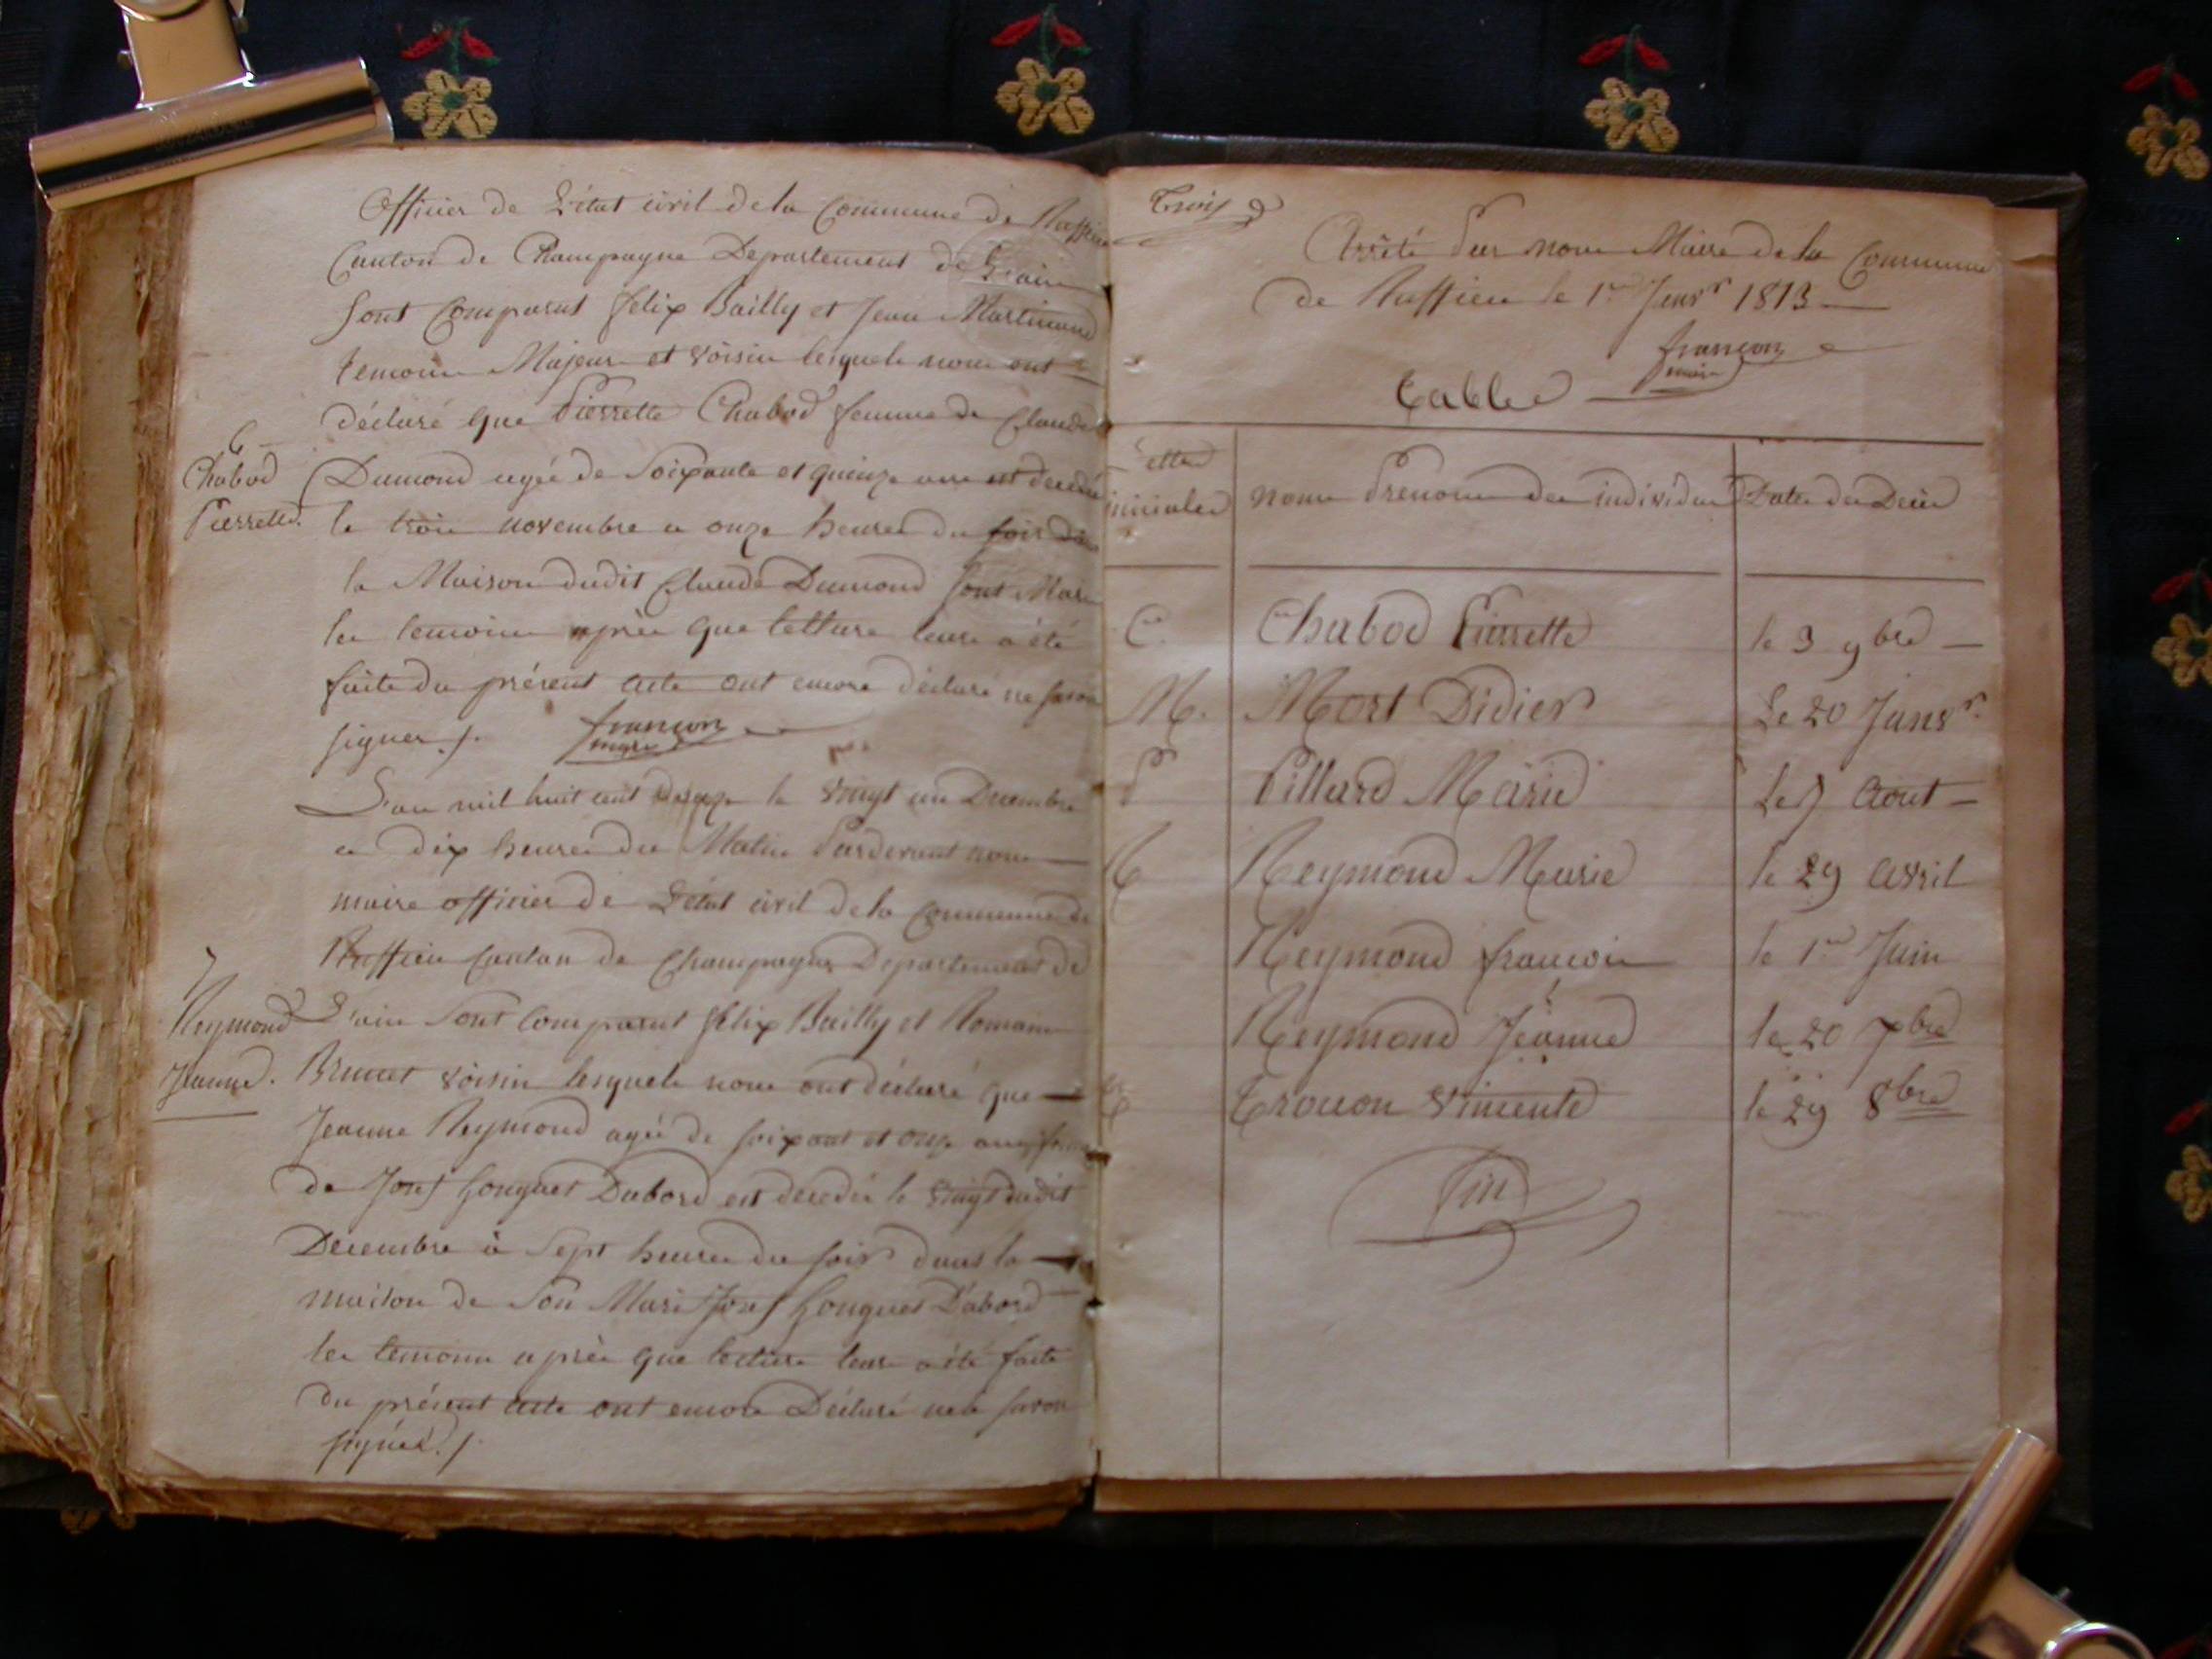 Officier de L'état civil de la Commune de Ruffieu
Canton de Champagne Departement de L'ain
Sont Comparut felix Bailly et Jean Martinand
temoins Majeurs et voisin lesquels nous ont
déclaré que Pierrette Chabod femme de Claude
6
Chabod
Pierrette.
Dumond agée de Soixante et quinze ans est decedée
le trois novembre a onze heures du soir dans
la Maison dudit Claude Dumond Sont Mari
les temoins après que letture leurs a été
faite du présent acte ont encore déclaré ne savoir
signer ./.
françon
maire
L'an mil huit cent douze le vingt un Decembre
a dix heures du Matin Pardevant nous
maire officier de L'état civil de la Commune de
Ruffieu Canton de Champagne Departement de
7
Reymond
Jeanne.
L'ain Sont Comparut felix Bailly et Romain
Brunet voisin lesquels nous ont déclaré que
Jeanne Reymond agée de soixant et onze ans femme
de Josef Gonguet Dabord est decedée le vingt dudit
Decembre à Sept heures du soir dans la
maison de Son Mari Josef Gonguet D'abord
les temoins après que lecture leurs a été faite
du présent acte ont encore Déclaré ne savoir
signer ./.
Trois
Arrêté Par nous Maire de la Commune
de Ruffieu le 1er Janvr 1813
françon
maire
Table
Lettres initiales | noms Prenoms des individus | Dates des Decès
C. Chabod Pierrette le 3 9bre
M. Mort Didier Le 20 Janvr.
P Pillard Marie Le 5 Aout
R Reymond Marie le 29 Avril
Reymond françois le 1er Juin
Reymond Jeanne le 20 Xbre
T Trocon vincente le 29 8bre